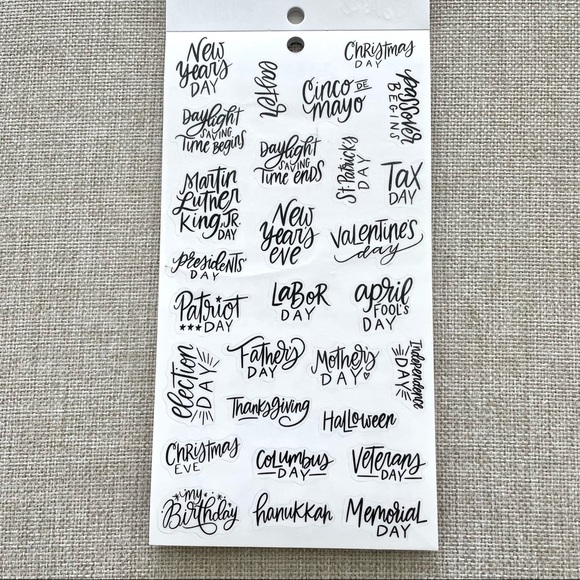 New
Years
DAY
easter
Cinco DE
mayo
Christmas
DAY
passover
BEGINS
Daylight
SAVING
Time Begins
Daylight
SAVING
Time ends
St. Patricks
DAY
Tax
DAY
Martin
Luther
King, JR.
DAY
New
Years
eve
Valentine's
day
presidents'
DAY
Patriot
DAY
LaBoR
DAY
april
FOOL'S
DAY
election
DAY
Father's
DAY
Mother's
DAY
Independence
DAY
Thanksgiving
Halloween
Christmas
EVE
Columbus
DAY
Veterans
DAY
my
Birthday
hanukkah
Memorial
DAY